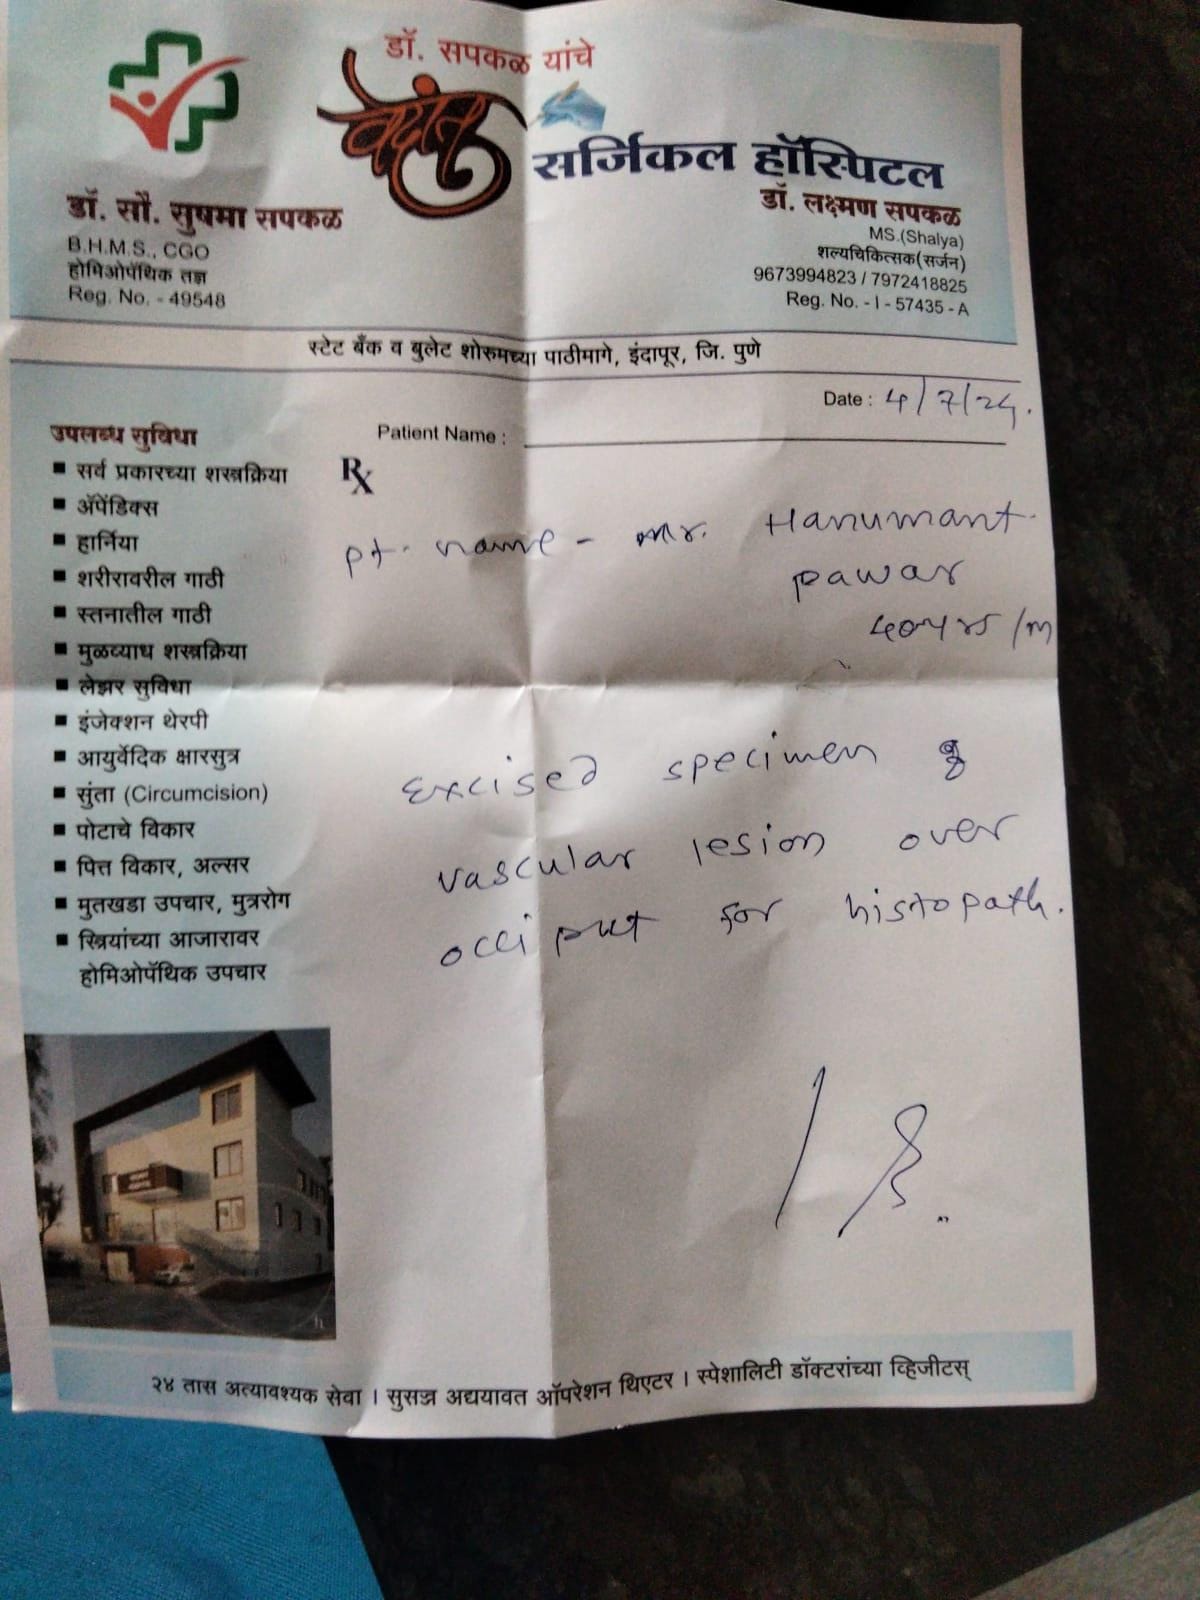 डॉ. सपकळ यांचे
वेदांत
सर्जिकल हॉस्पिटल
डॉ. सौ. सुषमा सपकळ
B.H.M.S., CGO
होमिओपॅथिक तज्ञ
Reg. No. - 49548
डॉ. लक्ष्मण सपकळ
MS.(Shalya)
शल्यचिकित्सक(सर्जन)
9673994823 / 7972418825
Reg. No. - I - 57435 - A
स्टेट बँक व बुलेट शोरुमच्या पाठीमागे, इंदापूर, जि. पुणे
Date : 4/7/24.
Patient Name :
Rx
pt. name - Mr. Hanumant
pawar
40yrs/m
Excised specimen of
vascular lesion over
occiput for histopath.
उपलब्ध सुविधा
सर्व प्रकारच्या शस्त्रक्रिया
ॲपेंडिक्स
हार्निया
शरीरावरील गाठी
स्तनातील गाठी
मुळव्याध शस्त्रक्रिया
लेझर सुविधा
इंजेक्शन थेरपी
आयुर्वेदिक क्षारसुत्र
सुंता (Circumcision)
पोटाचे विकार
पित्त विकार, अल्सर
मुतखडा उपचार, मुत्ररोग
स्त्रियांच्या आजारावर
होमिओपॅथिक उपचार
२४ तास अत्यावश्यक सेवा । सुसज्ज अद्ययावत ऑपरेशन थिएटर । स्पेशालिटी डॉक्टरांच्या व्हिजीटस्